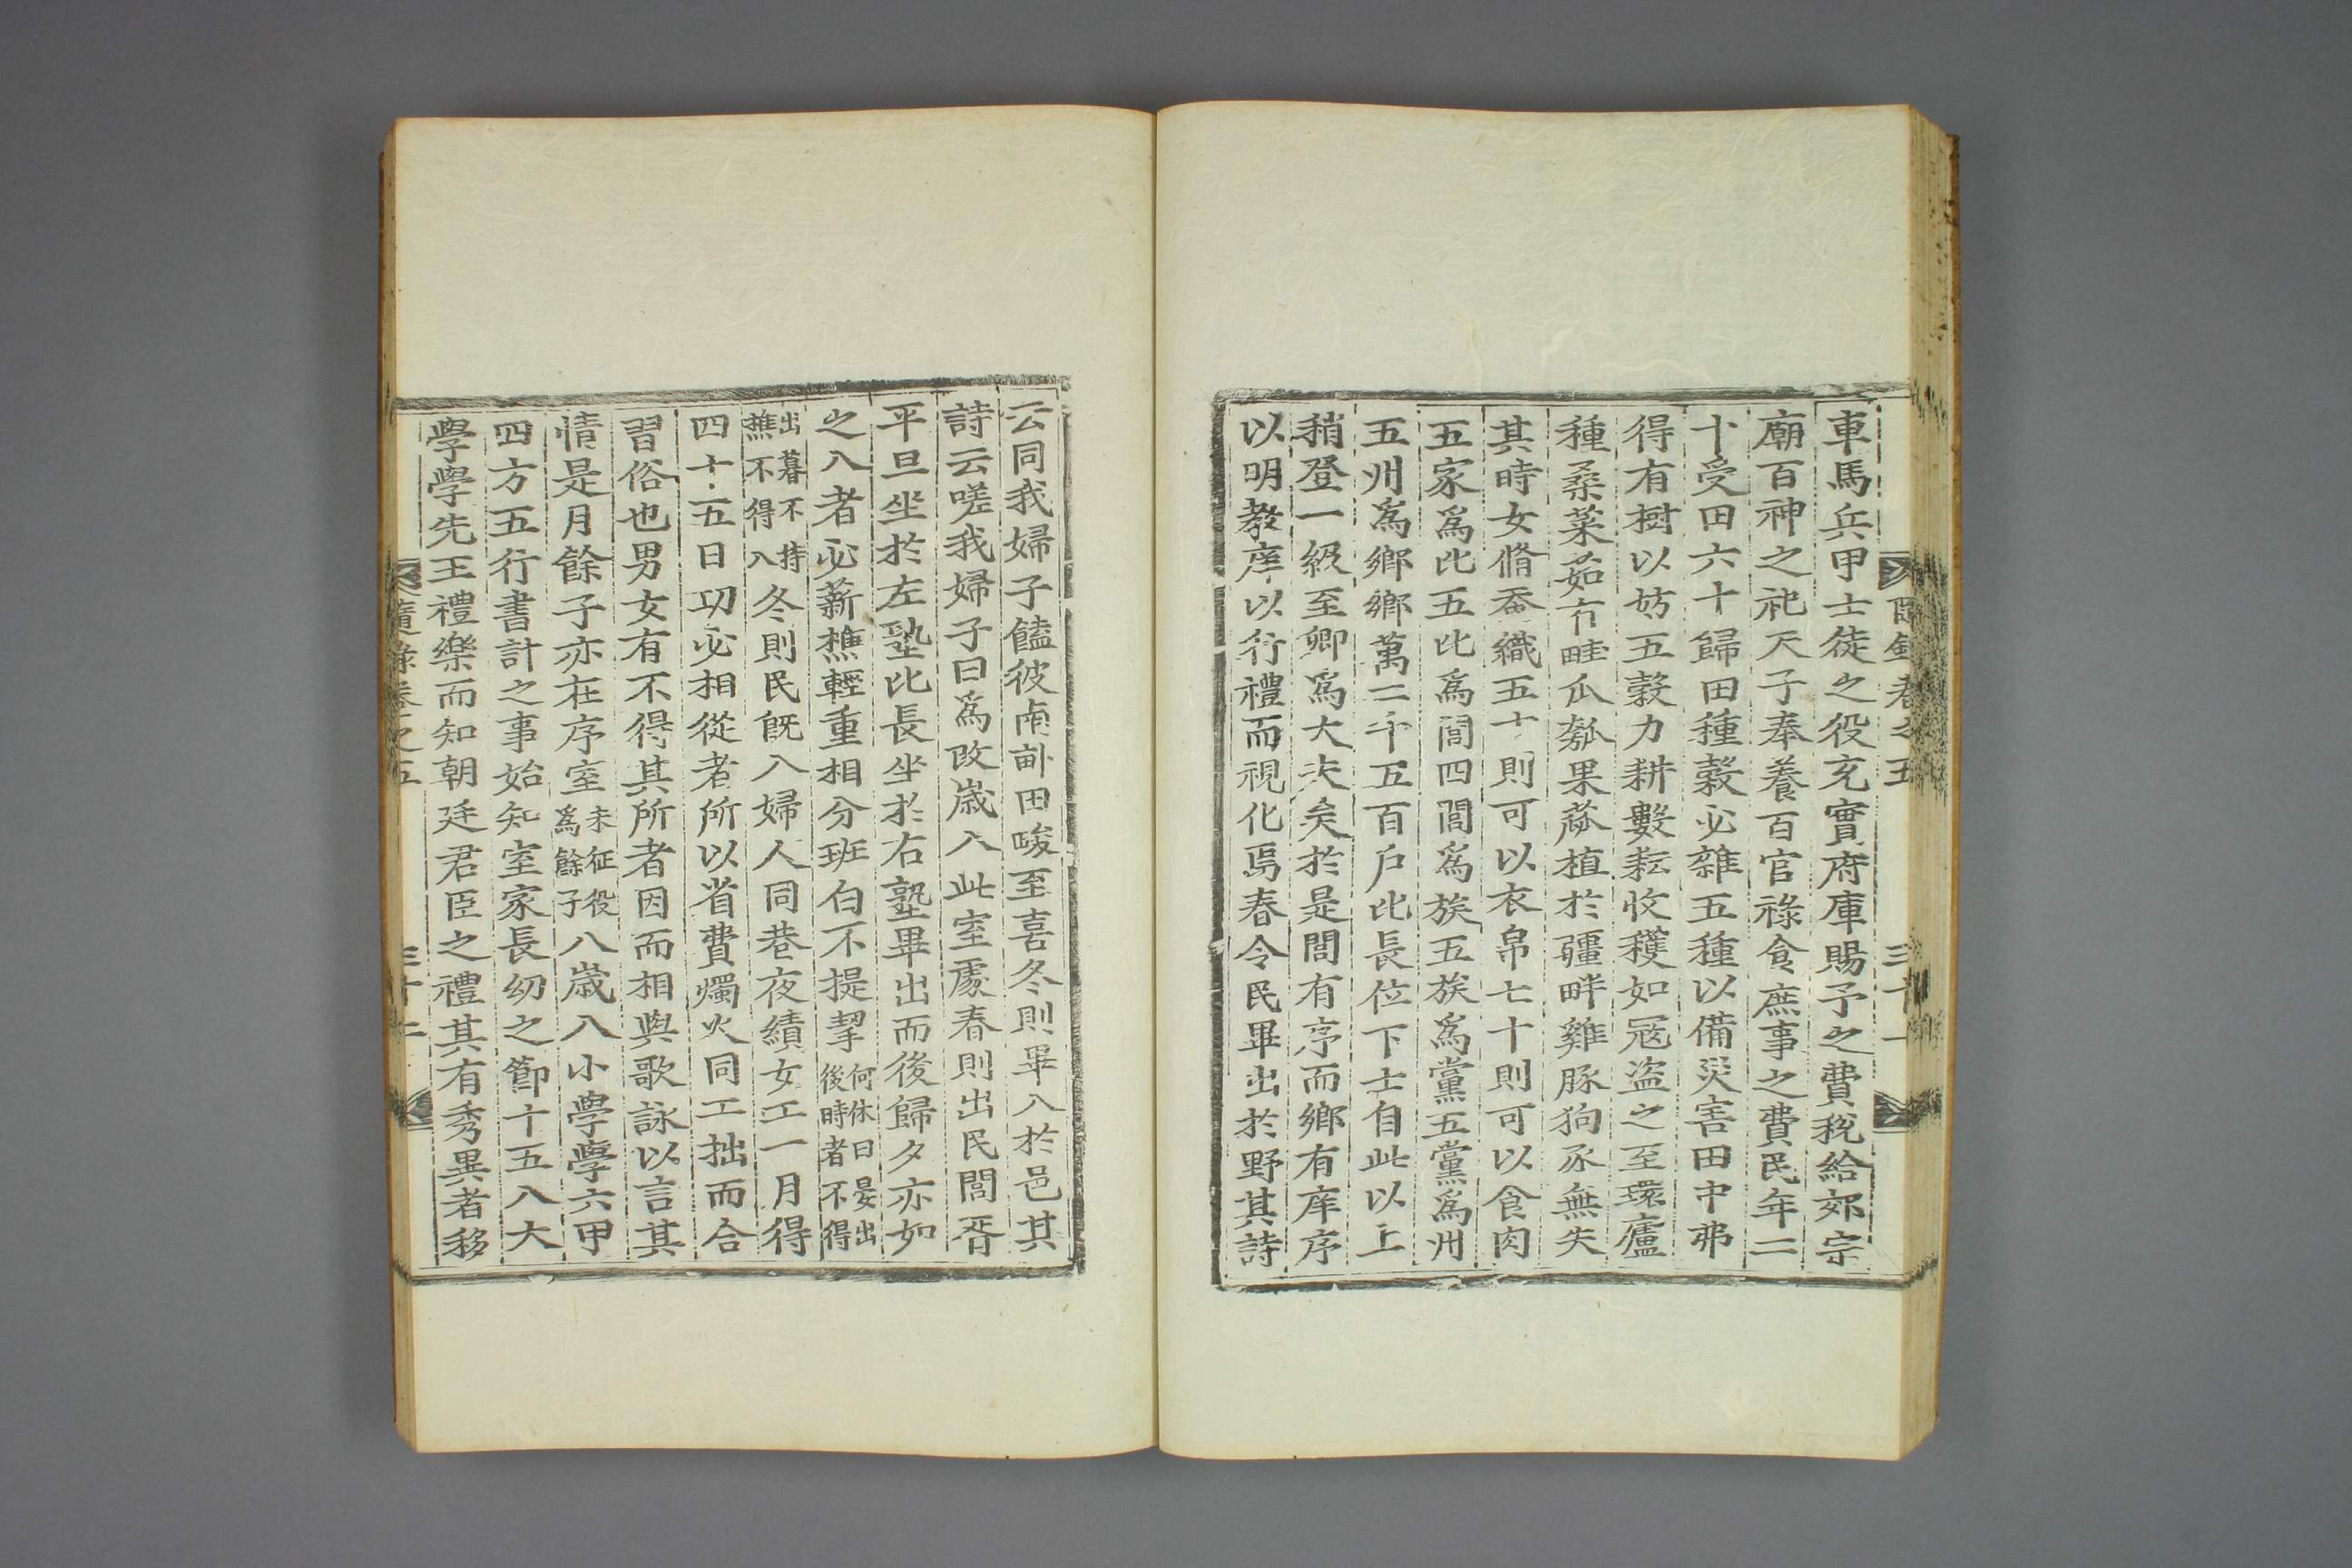 車馬兵甲士徒之役充實府庫賜予之費稅給郊宗
廟百神之祀天子奉養百官祿食庶事之費民年二
十受田六十歸田種穀必雜五種以備災害田中弗
得有樹以妨五穀力耕數耘收穫如寇盜之至環廬
種桑菜茹有畦瓜瓠果蓏植於疆畔雞豚狗豕無失
其時女脩蚕織五十則可以衣帛七十則可以食肉
五家爲比五比爲閭四閭爲族五族爲黨五黨爲州
五州爲鄉鄉萬二千五百戶比長位下士自此以上
稍登一級至卿爲大夫矣於是閭有序而鄉有庠序
以明教庠以行禮而視化焉春令民畢出於野其詩
云同我婦子饁彼南畝田畯至喜冬則畢入於邑其
詩云嗟我婦子曰爲改歲入此室處春則出民閭胥
平旦坐於左塾比長坐於右塾畢出而後歸夕亦如
之入者必薪樵輕重相分班白不提挈何休曰晏出後時者不得
出暮不持樵不得入冬則民旣入婦人同巷夜績女工一月得
四十五日功必相從者所以省費燭火同工拙而合
習俗也男女有不得其所者因而相與歌詠以言其
情是月餘子亦在序室未征役爲餘子八歲入小學學六甲
四方五行書計之事始知室家長幼之節十五入大
學學先王禮樂而知朝廷君臣之禮其有秀異者移
隨錄卷之五
三十二